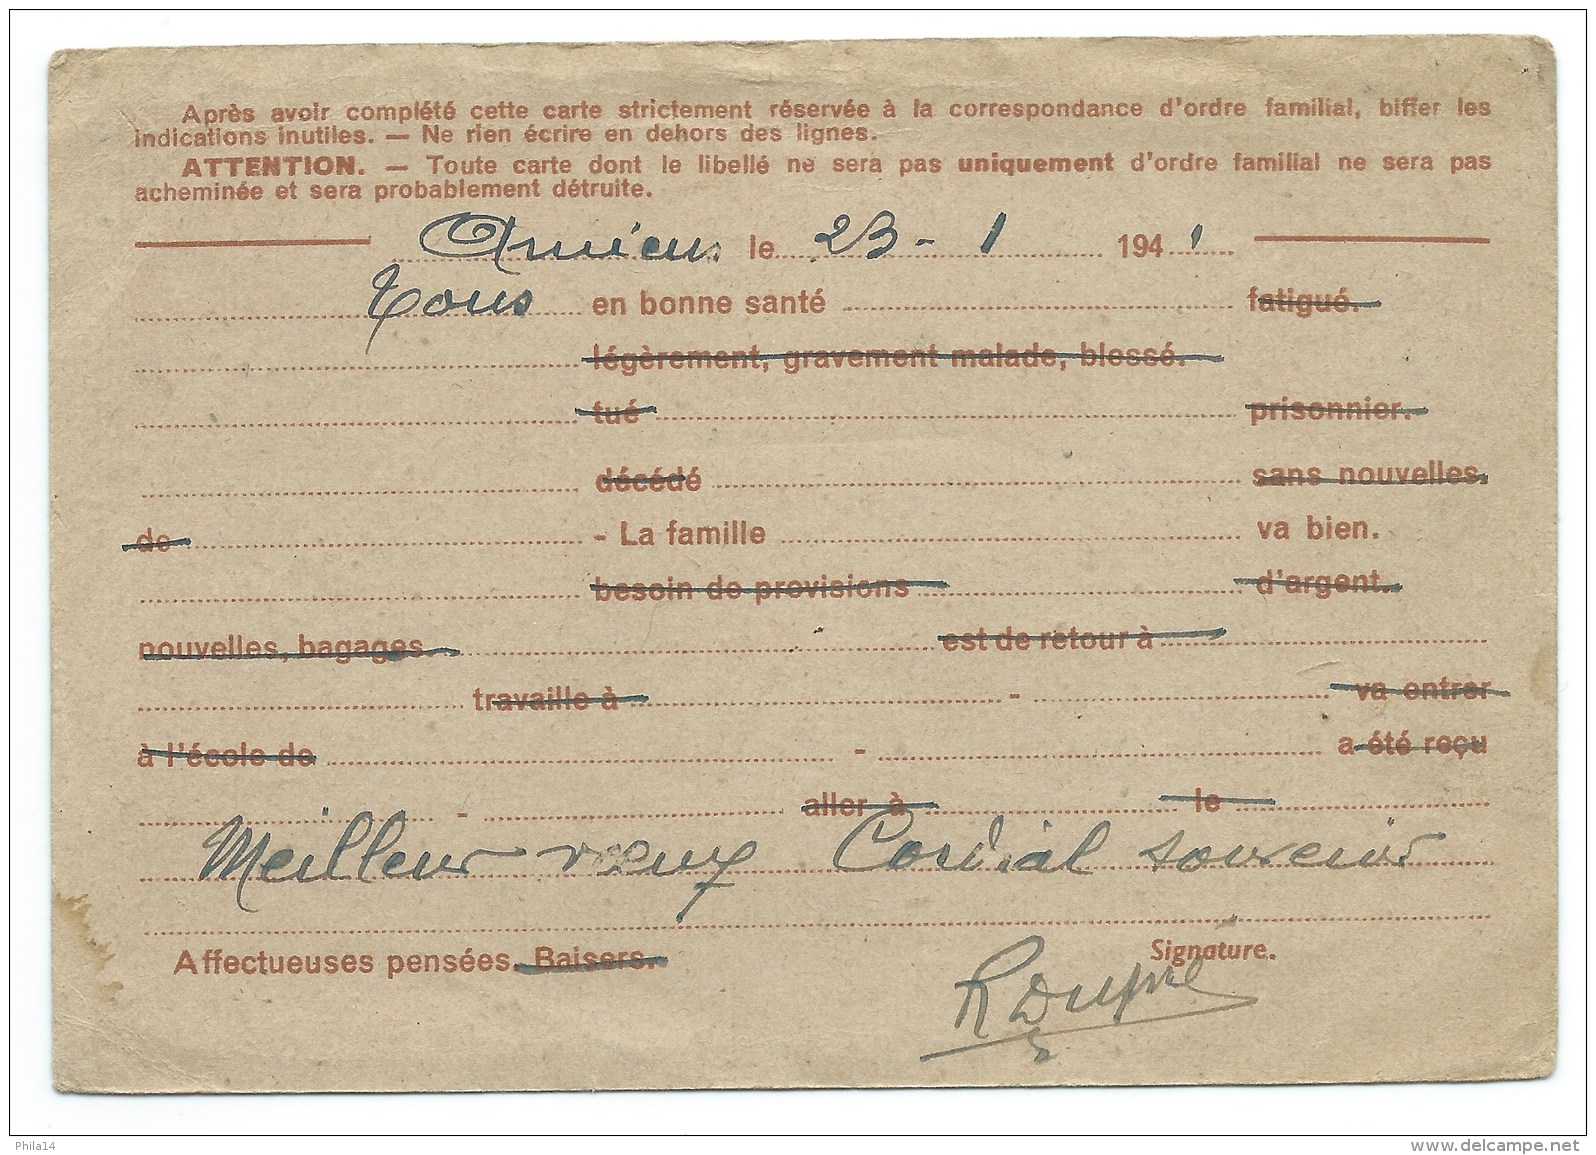 Après avoir complété cette carte strictement réservée à la correspondance d'ordre familial, biffer les
indications inutiles. — Ne rien écrire en dehors des lignes.
ATTENTION. — Toute carte dont le libellé ne sera pas uniquement d'ordre familial ne sera pas
acheminée et sera probablement détruite.
Amiens le 23 - 1 1941
Tous en bonne santé fatigué.
légèrement, gravement malade, blessé.
tué prisonnier.
décédé sans nouvelles
de - La famille va bien.
besoin de provisions d'argent.
nouvelles, bagages. est de retour à
travaille à - va entrer
à l'école de - a été reçu
- aller à le
Meilleur vœux Cordial souvenir
Affectueuses pensées. Baisers.
Signature.
R Dupré
Phila14
www.delcampe.net